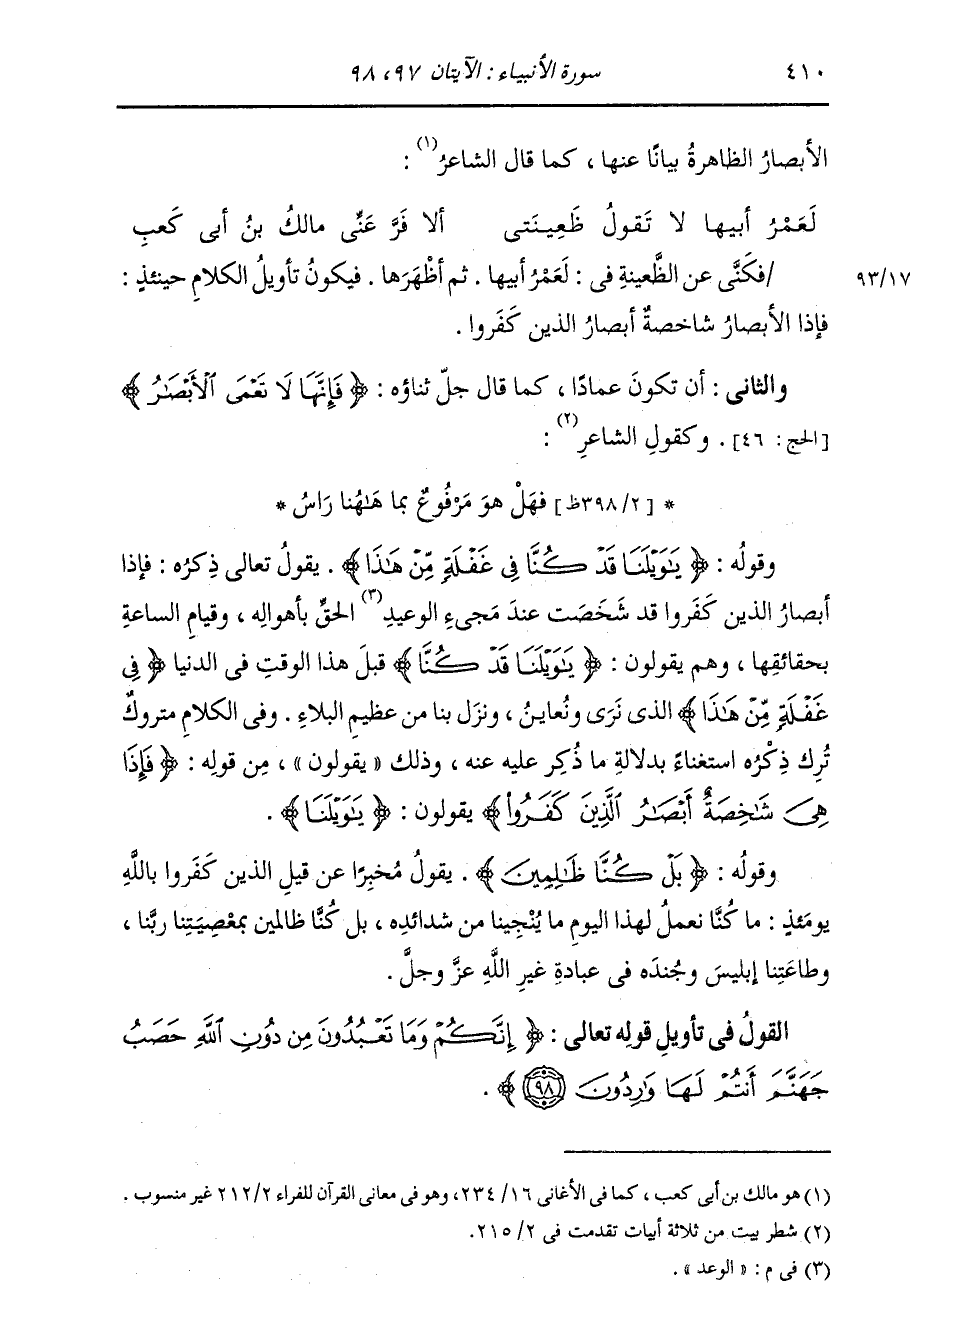 ٤١٠ سورة الأنبياء : الآيتان ٩٧، ٩٨
الأبصارُ الظاهرةُ بيانًا عنها ، كما قال الشاعرُ(١) :
لَعَمْرُ أبيها لا تَقولُ ظَعِينَتى ألا فَرَّ عَنِّى مالكُ بنُ أبى كَعبِ
٩٣/١٧ /فكَنَّى عن الظَّعينةِ فى : لَعَمْرُ أبيها . ثم أظْهَرَها . فيكونُ تأويلُ الكلامِ حينئذٍ :
فإذا الأبصارُ شاخصةٌ أبصارُ الذين كَفَروا .
والثانى : أن تكونَ عمادًا ، كما قال جلّ ثناؤه : ﴿ فَإِنَّهَا لَا تَعْمَى ٱلْأَبْصَٰرُ ﴾
[الحج : ٤٦] . وكقولِ الشاعرِ(٢) :
* [٣٩٨/٢ظ] فهَلْ هوَ مَرْفُوعٌ بما هَٰهُنا رَاسُ *
وقولُه : ﴿ يَٰوَيْلَنَا قَدْ كُنَّا فِى غَفْلَةٍ مِّنْ هَٰذَا ﴾ . يقولُ تعالى ذِكرُه : فإذا
أبصارُ الذين كَفَروا قد شَخَصَت عندَ مَجىءِ الوعيدِ(٣) الحقِّ بأهوالِه ، وقيامِ الساعةِ
بحقائقِها ، وهم يقولون : ﴿ يَٰوَيْلَنَا قَدْ كُنَّا ﴾ قبلَ هذا الوقتِ فى الدنيا ﴿ فِى
غَفْلَةٍ مِّنْ هَٰذَا ﴾ الذى نَرَى ونُعاينُ ، ونزَل بنا من عظيمِ البلاءِ . وفى الكلامِ متروكٌ
تُرِك ذِكْرُه استغناءً بدلالةِ ما ذُكِر عليه عنه ، وذلك « يقولون » ، مِن قولِه : ﴿ فَإِذَا
هِىَ شَٰخِصَةٌ أَبْصَٰرُ ٱلَّذِينَ كَفَرُوا۟ ﴾ يقولون : ﴿ يَٰوَيْلَنَا ﴾ .
وقولُه : ﴿ بَلْ كُنَّا ظَٰلِمِينَ ﴾ . يقولُ مُخبِرًا عن قيلِ الذين كَفَروا باللَّهِ
يومَئذٍ : ما كُنَّا نعملُ لهذا اليومِ ما يُنْجِينا من شدائدِه ، بل كُنَّا ظالمين بمعْصِيَتِنا ربَّنا ،
وطاعَتِنا إبليسَ وجُندَه فى عبادةِ غيرِ اللَّهِ عزَّ وجلَّ .
القولُ فى تأويلِ قولِه تعالى : ﴿ إِنَّكُمْ وَمَا تَعْبُدُونَ مِن دُونِ ٱللَّهِ حَصَبُ
جَهَنَّمَ أَنتُمْ لَهَا وَٰرِدُونَ ٩٨ ﴾ .
(١) هو مالك بن أبى كعب ، كما فى الأغانى ١٦/ ٢٣٤، وهو فى معانى القرآن للفراء ٢١٢/٢ غير منسوب .
(٢) شطر بيت من ثلاثة أبيات تقدمت فى ٢/ ٢١٥.
(٣) فى م : « الوعد » .